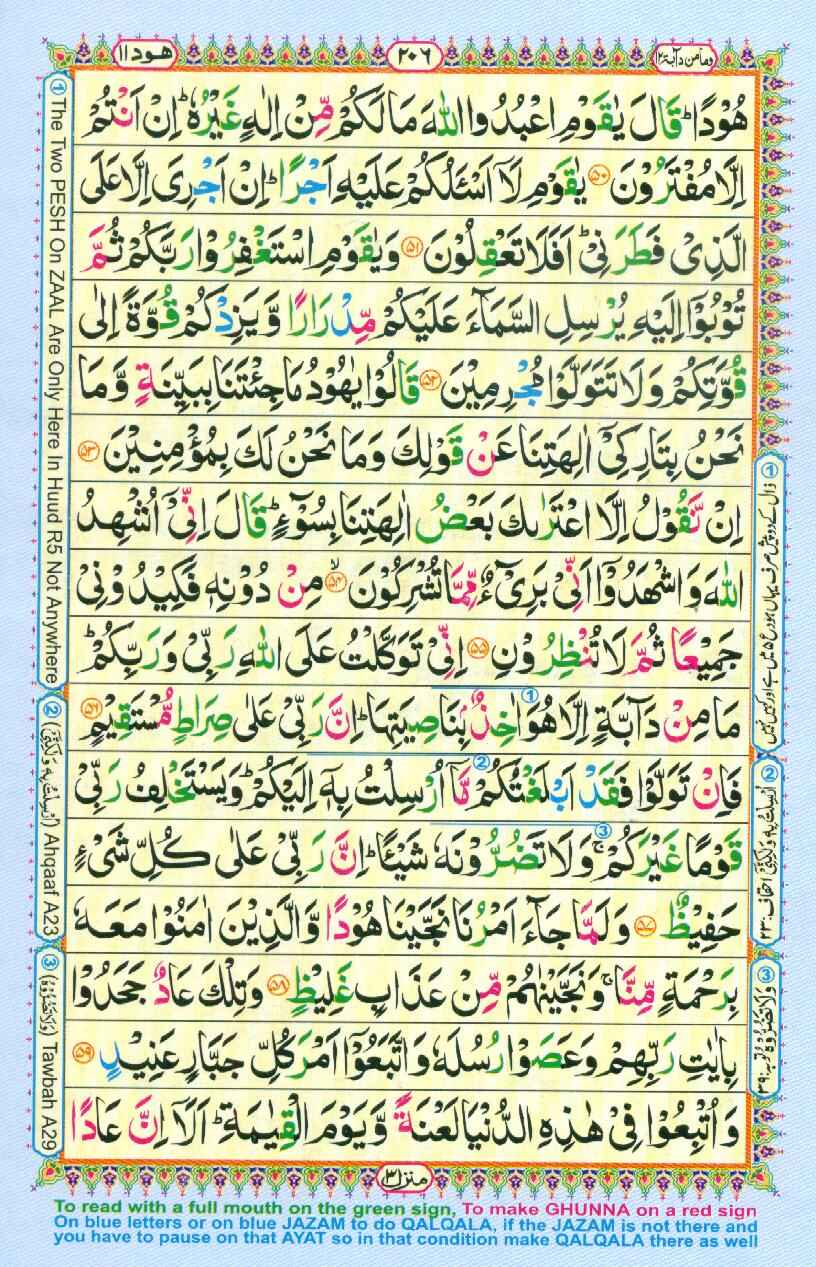 وما من دآبة ١٢
٢٠٦
هود ١١
هُوْدًا ؕ قَالَ يٰقَوْمِ اعْبُدُوا اللّٰهَ مَا لَكُمْ مِّنْ اِلٰهٍ غَيْرُهٗ ؕ اِنْ اَنْتُمْ
اِلَّا مُفْتَرُوْنَ ۵۰ يٰقَوْمِ لَاۤ اَسْـَٔلُكُمْ عَلَيْهِ اَجْرًا ؕ اِنْ اَجْرِىَ اِلَّا عَلَى
الَّذِىْ فَطَرَنِىْ ؕ اَفَلَا تَعْقِلُوْنَ ۵۱ وَيٰقَوْمِ اسْتَغْفِرُوْا رَبَّكُمْ ثُمَّ
تُوْبُوْۤا اِلَيْهِ يُرْسِلِ السَّمَآءَ عَلَيْكُمْ مِّدْرَارًا وَّيَزِدْكُمْ قُوَّةً اِلٰى
قُوَّتِكُمْ وَلَا تَتَوَلَّوْا مُجْرِمِيْنَ ۵۲ قَالُوْا يٰهُوْدُ مَا جِئْتَنَا بِبَيِّنَةٍ وَّمَا
نَحْنُ بِتَارِكِىْۤ اٰلِهَتِنَا عَنْ قَوْلِكَ وَمَا نَحْنُ لَكَ بِمُؤْمِنِيْنَ ۵۳
اِنْ نَّقُوْلُ اِلَّا اعْتَرٰىكَ بَعْضُ اٰلِهَتِنَا بِسُوْٓءٍ ؕ قَالَ اِنِّىْۤ اُشْهِدُ
اللّٰهَ وَاشْهَدُوْۤا اَنِّىْ بَرِىْٓءٌ مِّمَّا تُشْرِكُوْنَ ۵۴ ۙ مِنْ دُوْنِهٖ فَكِيْدُوْنِىْ
جَمِيْعًا ثُمَّ لَا تُنْظِرُوْنِ ۵۵ اِنِّىْ تَوَكَّلْتُ عَلَى اللّٰهِ رَبِّىْ وَرَبِّكُمْ ؕ
مَا مِنْ دَآبَّةٍ اِلَّا هُوَ اٰخِذٌۢ بِنَاصِيَتِهَا ؕ اِنَّ رَبِّىْ عَلٰى صِرَاطٍ مُّسْتَقِيْمٍ ۵۶
فَاِنْ تَوَلَّوْا فَقَدْ اَبْلَغْتُكُمْ مَّاۤ اُرْسِلْتُ بِهٖۤ اِلَيْكُمْ ؕ وَيَسْتَخْلِفُ رَبِّىْ
قَوْمًا غَيْرَكُمْ ۚ وَلَا تَضُرُّوْنَهٗ شَيْـًٔا ؕ اِنَّ رَبِّىْ عَلٰى كُلِّ شَىْءٍ
حَفِيْظٌ ۵۷ وَلَمَّا جَآءَ اَمْرُنَا نَجَّيْنَا هُوْدًا وَّالَّذِيْنَ اٰمَنُوْا مَعَهٗ
بِرَحْمَةٍ مِّنَّا ۚ وَنَجَّيْنٰهُمْ مِّنْ عَذَابٍ غَلِيْظٍ ۵۸ وَتِلْكَ عَادٌ جَحَدُوْا
بِاٰيٰتِ رَبِّهِمْ وَعَصَوْا رُسُلَهٗ وَاتَّبَعُوْۤا اَمْرَ كُلِّ جَبَّارٍ عَنِيْدٍ ۵۹
وَاُتْبِعُوْا فِىْ هٰذِهِ الدُّنْيَا لَعْنَةً وَّيَوْمَ الْقِيٰمَةِ ؕ اَلَاۤ اِنَّ عَادًا
① ② ③
① ذال کے دو پیش صرف یہاں ہود ع ۵ میں ہے اور کہیں نہیں
② اُرْسِلْتُ بِهٖ وَلٰكِنِّىْ احقاف: ۲۳
③ وَلَا تَضُرُّوْهُ توبہ: ۳۹
① The Two PESH On ZAAL Are Only Here In Huud R5 Not Anywhere
② (اُرْسِلْتُ بِهٖ وَلٰكِنِّىْ) Ahqaaf A23
③ (وَلَا تَضُرُّوْهُ) Tawbah A29
منزل ٣
To read with a full mouth on the green sign, To make GHUNNA on a red sign
On blue letters or on blue JAZAM to do QALQALA, if the JAZAM is not there and
you have to pause on that AYAT so in that condition make QALQALA there as well